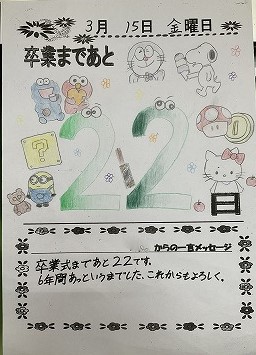 3月 15日 金曜日
卒業まであと
22日
?
からの一言メッセージ
卒業式まであと22です。
6年間あっというまでした、これからもよろしく。